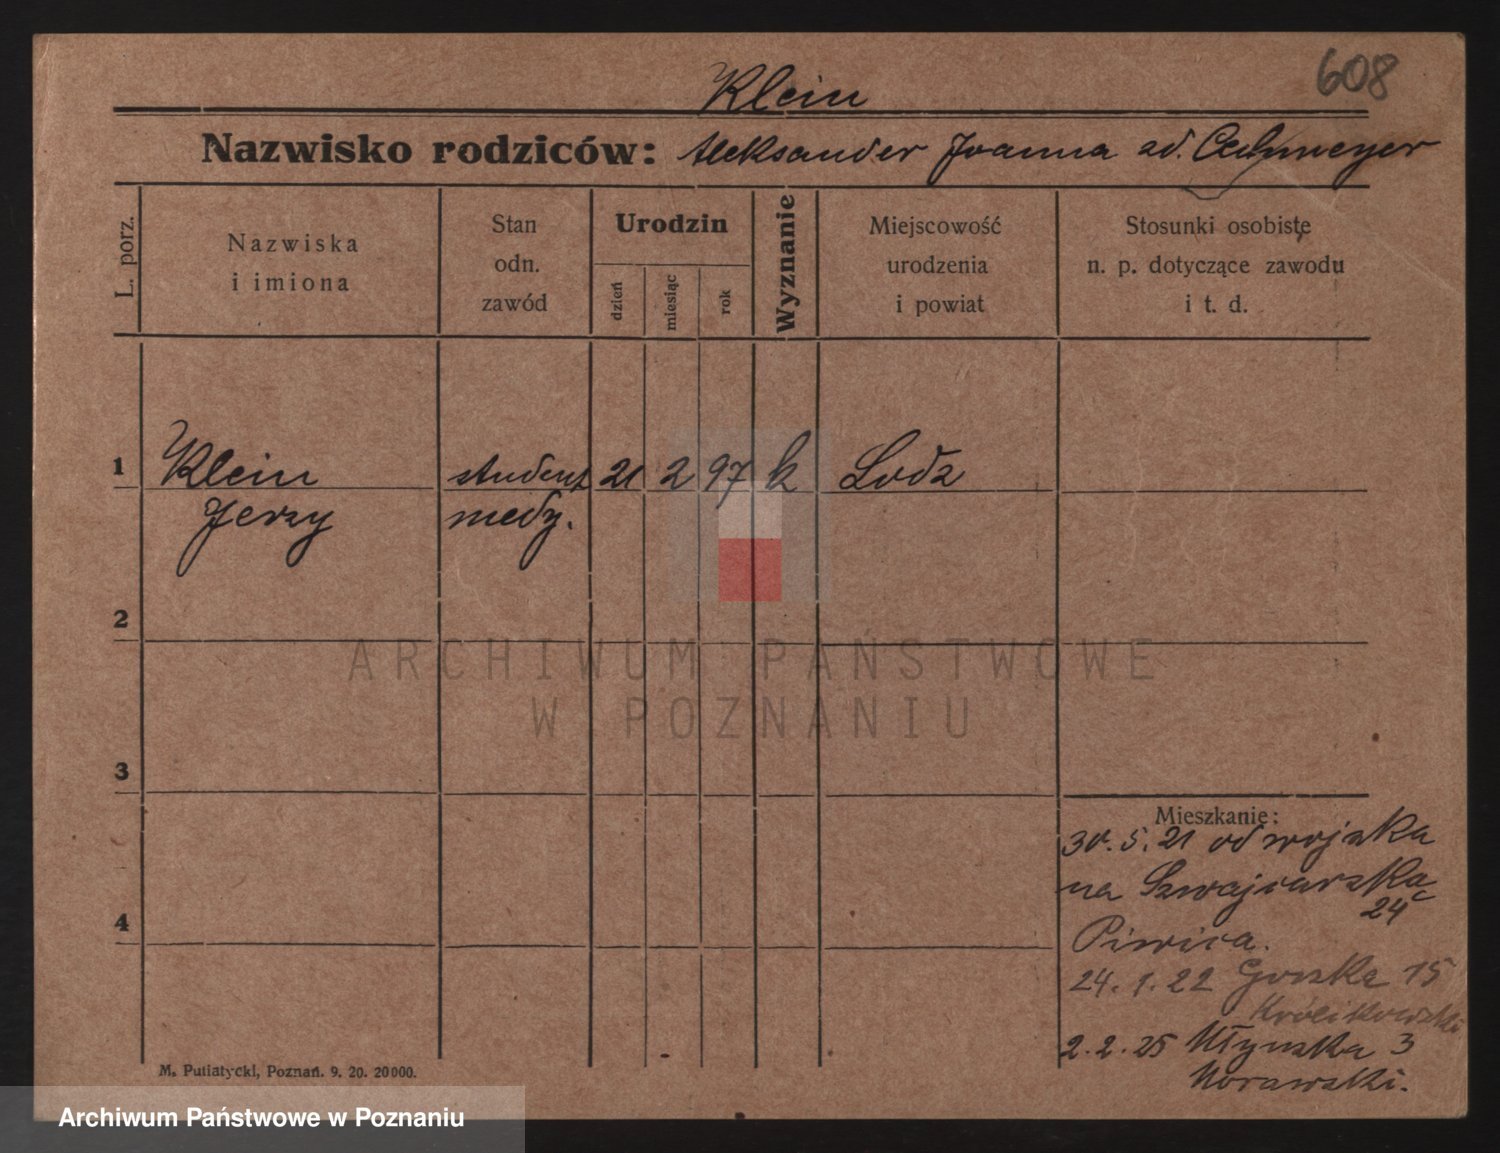 608
Klein
Nazwisko rodziców: Aleksander Joanna zd.
L. porz.
Nazwiska
i imiona
Stan
odn.
zawód
Urodzin
dzień
miesiąc
rok
Wyznanie
Miejscowość
urodzenia
i powiat
Stosunki osobiste
n. p. dotyczące zawodu
i t. d.
1 Klein student 21 2 97 k Lodz
Jerzy medy.
2
3
4
Mieszkanie:
30.5.21 od wojska
na Szwajcarską
24
Piwica.
24.1.22 Górska 15
Królikowski
2.2.25 Młyńska 3
Morawski.
M. Putiatycki, Poznań. 9. 20. 20000.
ARCHIWUM PAŃSTWOWE
W POZNANIU
Archiwum Państwowe w Poznaniu